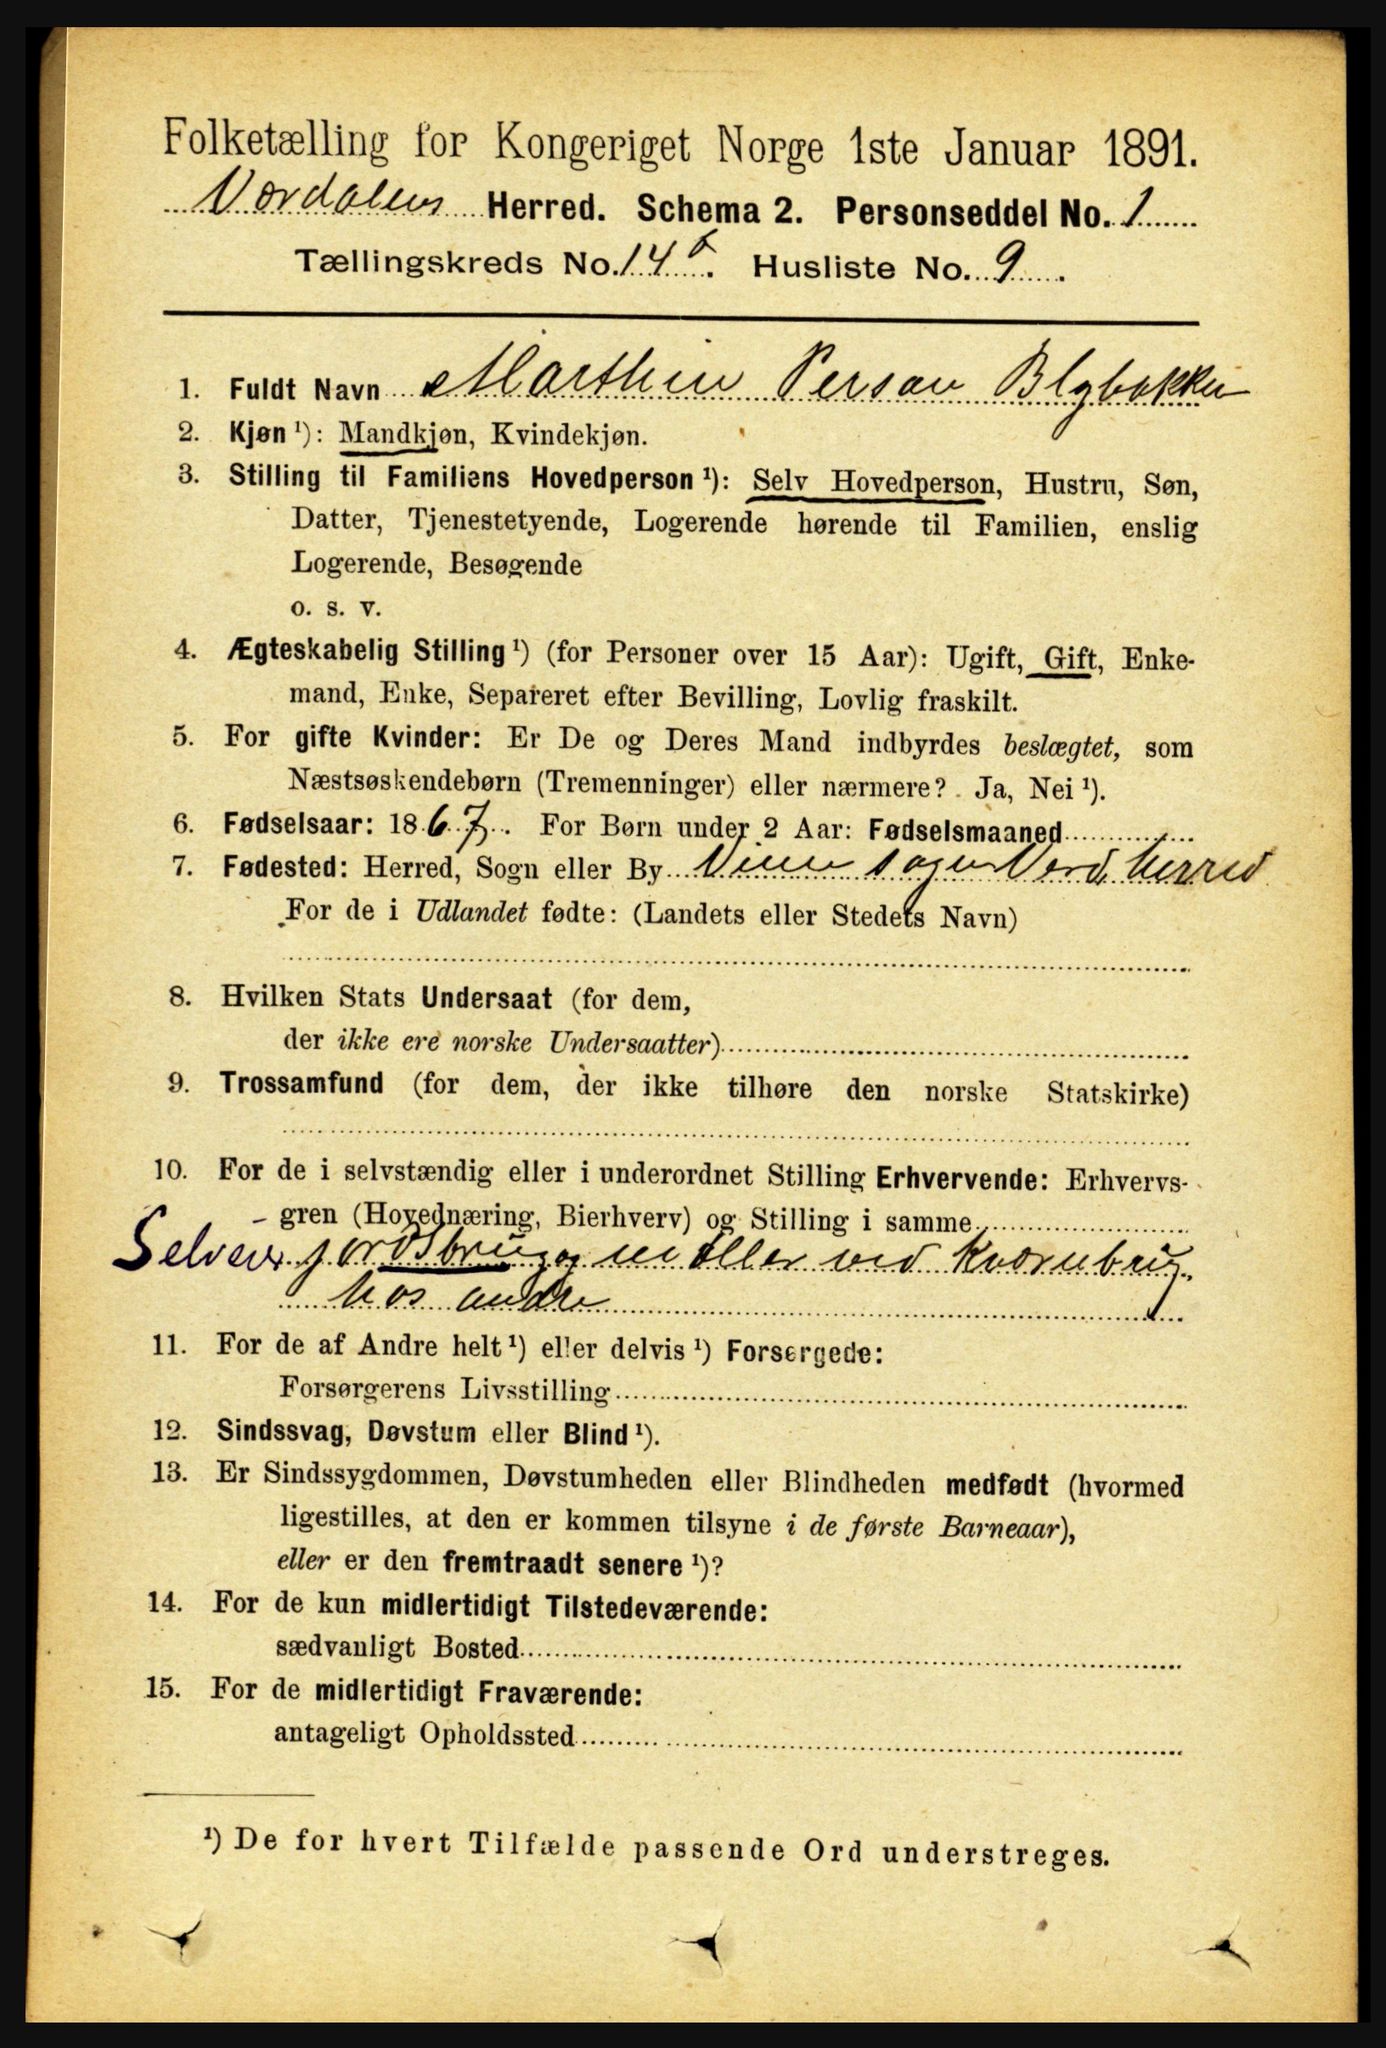 Folketælling for Kongeriget Norge 1ste Januar 1891.
Værdalens Herred. Schema 2. Personseddel No. 1
Tællingskreds No. 14 b. Husliste No. 9.
1. Fuldt Navn Marthin Person Blybakken
2. Kjøn ¹): Mandkjøn, Kvindekjøn.
3. Stilling til Familiens Hovedperson ¹): Selv Hovedperson, Hustru, Søn,
Datter, Tjenestetyende, Logerende hørende til Familien, enslig
Logerende, Besøgende
o. s. v.
4. Ægteskabelig Stilling ¹) (for Personer over 15 Aar): Ugift, Gift, Enke-
mand, Enke, Separeret efter Bevilling, Lovlig fraskilt.
5. For gifte Kvinder: Er De og Deres Mand indbyrdes beslægtet, som
Næstsøskendebørn (Tremenninger) eller nærmere? Ja, Nei ¹).
6. Fødselsaar: 1867. For Børn under 2 Aar: Fødselsmaaned
7. Fødested: Herred, Sogn eller By Vinne sogn Verd. herred
For de i Udlandet fødte: (Landets eller Stedets Navn)
8. Hvilken Stats Undersaat (for dem,
der ikke ere norske Undersaatter)
9. Trossamfund (for dem, der ikke tilhøre den norske Statskirke)
10. For de i selvstændig eller i underordnet Stilling Erhvervende: Erhvervs-
gren (Hovednæring, Bierhverv) og Stilling i samme
Selveier jordsbrug og møller ved Kværnbrug
hos andre
11. For de af Andre helt ¹) eller delvis ¹) Forsørgede:
Forsørgerens Livsstilling
12. Sindssvag, Døvstum eller Blind ¹).
13. Er Sindssygdommen, Døvstumheden eller Blindheden medfødt (hvormed
ligestilles, at den er kommen tilsyne i de første Barneaar),
eller er den fremtraadt senere ¹)?
14. For de kun midlertidigt Tilstedeværende:
sædvanligt Bosted
15. For de midlertidigt Fraværende:
antageligt Opholdssted
¹) De for hvert Tilfælde passende Ord understreges.